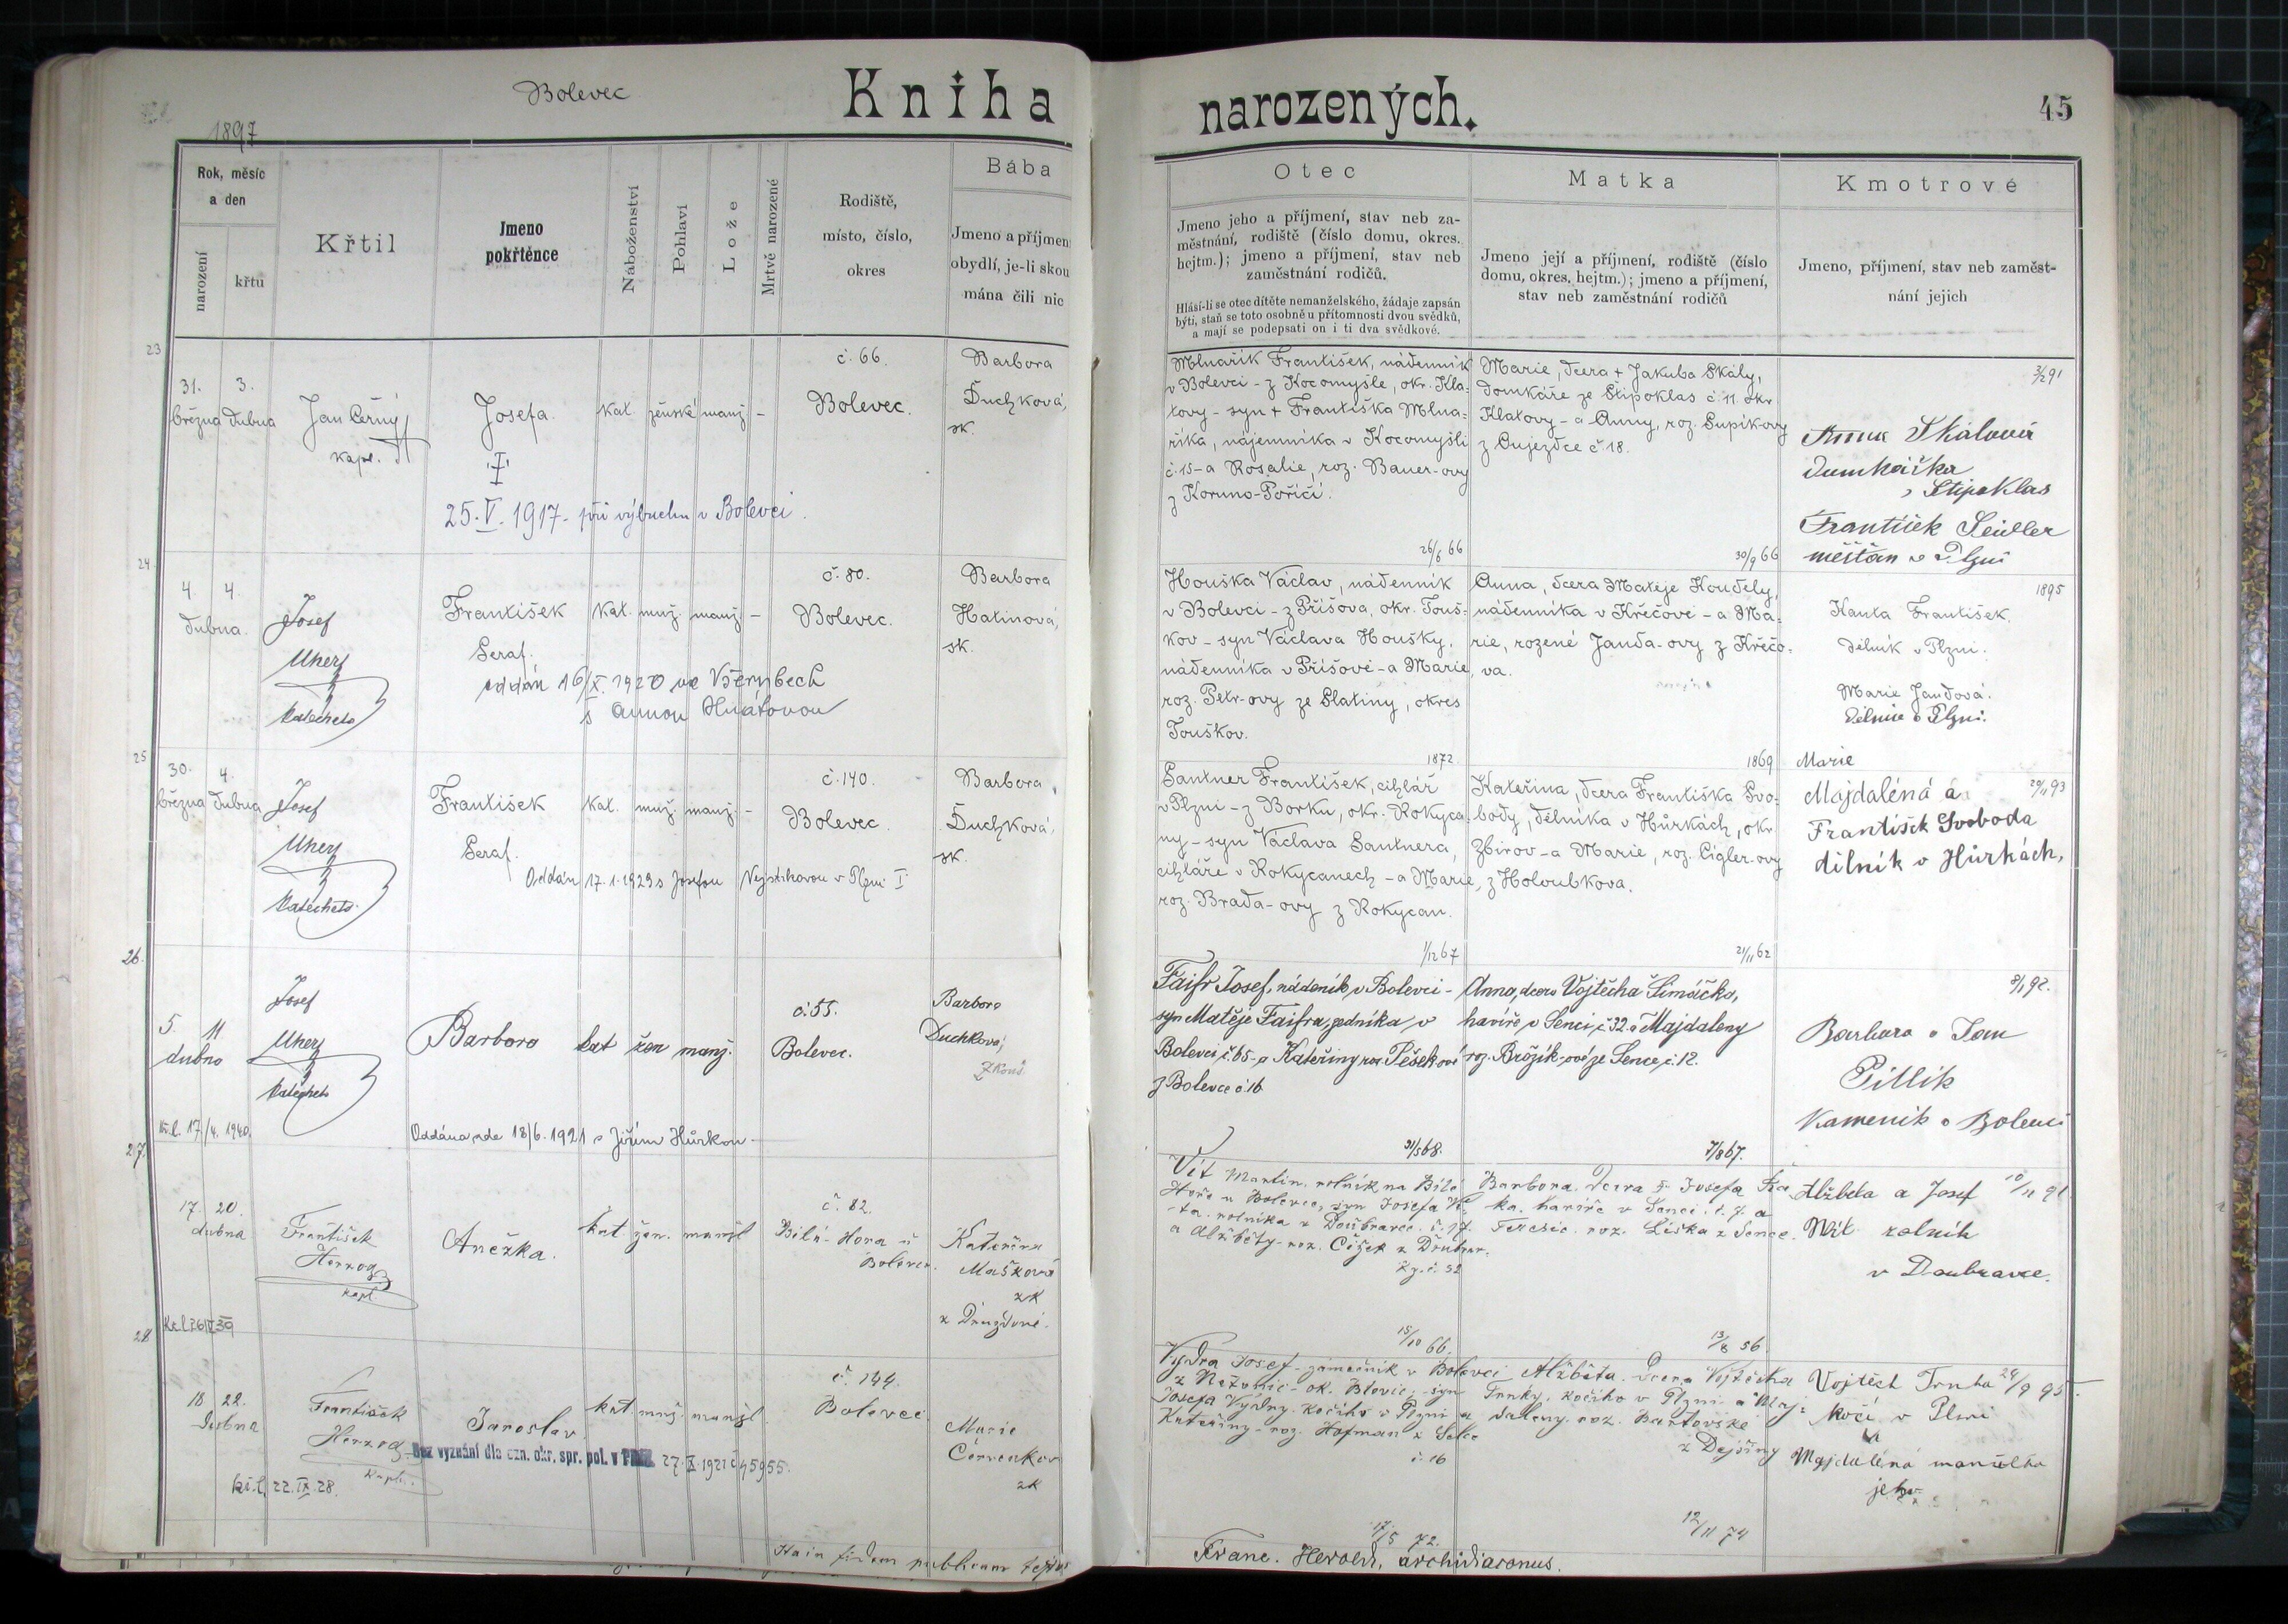 Bolevec
Kniha narozených.
45
1897
Rok, měsíc
a den
narození
křtu
Křtil
Jmeno
pokřtěnce
Náboženství
Pohlaví
Lože
Mrtvě narozené
Rodiště,
místo, číslo,
okres
Bába
Jmeno a příjmen
obydlí, je-li skou
mána čili nic
Otec
Jmeno jeho a příjmení, stav neb za-
městnání, rodiště (číslo domu, okres.
hejtm.); jmeno a příjmení, stav neb
zaměstnání rodičů.
Hlásí-li se otec dítěte nemanželského, žádaje zapsán
býti, staň se toto osobně u přítomnosti dvou svědků,
a mají se podepsati on i ti dva svědkové.
Matka
Jmeno její a příjmení, rodiště (číslo
domu, okres. hejtm.); jmeno a příjmení,
stav neb zaměstnání rodičů
Kmotrové
Jmeno, příjmení, stav neb zaměst-
nání jejich
23
31. 3.
března dubna
Jan Černý
kapl.
Josefa.
kat. ženské manž. –
č. 66.
Bolevec.
Barbora
Duchková,
sk.
25. V. 1917 - při výbuchu v Bolevci.
Mlnařík František, nádenník
v Bolevci - z Kocomyšle, okr. Kla-
tovy - syn + Františka Mlna-
říka, nájemníka v Kocomyšli
č. 15 - a Rosalie, roz. Bauer-ovy
z Koruno-Poříčí.
26/6 66
Marie, dcera + Jakuba Skály,
domkáře ze Štipoklas č. 11. okr.
Klatovy - a Anny, roz. Supíkovy
z Oujezdce č. 18.
30/9 66
3/2 91
Anna Skálová
domkářka
z Štipoklas
František Seidler
měšťan v Plzni
24
4. 4.
dubna.
Josef
Uherz
katecheta
František
Seraf.
kat. muž. manž. –
č. 80.
Bolevec.
Barbora
Hatinová,
sk.
oddán 16/X. 1920 ve Všerubech
s Annou Hnátovou
Houška Václav, nádenník
v Bolevci - z Příšova, okr. Touš-
kov - syn Václava Houšky,
nádenníka v Příšově - a Marie,
roz. Petr-ovy ze Slatiny, okres
Touškov.
1872.
Anna, dcera Matěje Koudely,
nádenníka v Křečově - a Ma-
rie, rozené Janda-ovy z Křečo-
va.
1869
1895
Kanta František.
dělník v Plzni.
Marie Jandová.
dělnice v Plzni.
25
30. 4.
března dubna
Josef
Uherz
katecheta
František
Seraf.
kat. muž. manž. –
č. 140.
Bolevec.
Barbora
Duchková,
sk.
Oddán 17.1.1923 s Josefou Nejstikovou v Plzni I
Santner František, cihlář
v Plzni - z Borku, okr. Rokyca-
ny - syn Václava Santnera,
cihláře v Rokycanech - a Marie,
roz. Brada-ovy z Rokycan.
1/12 67
Kateřina, dcera Františka Svo-
body, dělníka v Hůrkách, okr.
Zbirov - a Marie, roz. Cígler-ovy
z Holoubkova.
21/11 62
Marie
Majdaléná a 20/11 93
František Svoboda
dělník v Hůrkách,
26.
5. 11
dubna
Josef
Uherz
katecheta
Barbora
kat žen manž.
č. 55.
Bolevec.
Barbora
Duchková,
zkouš.
kř. l. 17/4. 1940.
Oddána dne 18/6. 1921 s Jiřím Hůrkou
Faifr Josef, nádeník v Bolevci -
syn Matěje Faifra, zedníka v
Bolevci č. 65 - a Kateřiny roz. Pešek-ové
z Bolevce č. 16.
31/5 68.
Anna, dcera Vojtěcha Šimáčka,
havíře v Senci, č. 32. a Majdaleny
roz. Brožík-ové ze Sence, č. 12.
7/8 67.
8/1 92.
Barbara a Jan
Pillik
Kameník v Bolevci
27.
17. 20.
dubna
František
Herzog
kapl.
Anežka.
kat žen. manžl
č. 82.
Bílá-Hora u
Bolevce.
Kateřina
Mašková
zk
z Druzdové.
kř. l. 26 IV 39
Vít Martin, rolník na Bílé
Hoře u Bolevce, syn Josefa Ví-
ta, rolníka v Doubravce č. 17.
a Alžběty roz. Čížek z Doubrav-
ky. č. 32
15/10 66.
Barbora, dcera + Josefa
ka, havíře v Senci č. 7. a
Terezie roz. Liška z Sence.
13/8 56.
Alžběta a Josef 10/11 91
Vít rolník
v Doubravce.
28
18 22.
dubna
František
Herzog
kapl.
Jaroslav
kat muž. manžl.
č. 144.
Bolevec
Marie
Červenkov
zk
Bez vyznání dle ozn. okr. spr. pol. v Plzni 27. X. 1921 č 45955.
kř. l. 22. IX. 28.
Vydra Josef - zámečník v Bolevci
z Nezvěstic - ok. Blovic, syn
Josefa Vydry, kočího v Plzni a
Kateřiny - roz. Hofman z Selce
č. 16
17/5 72.
Alžběta, dcera Vojtěcha
Trnky, kočího v Plzni a Maj-
daleny roz. Bartovské
z Dejšiny
12/11 74
Vojtěch Trnka 24/9 95.
kočí v Plzni
a
Majdaléna manželka
jeho.
In fidem publicam
Franc. Herold, archidiaconus.